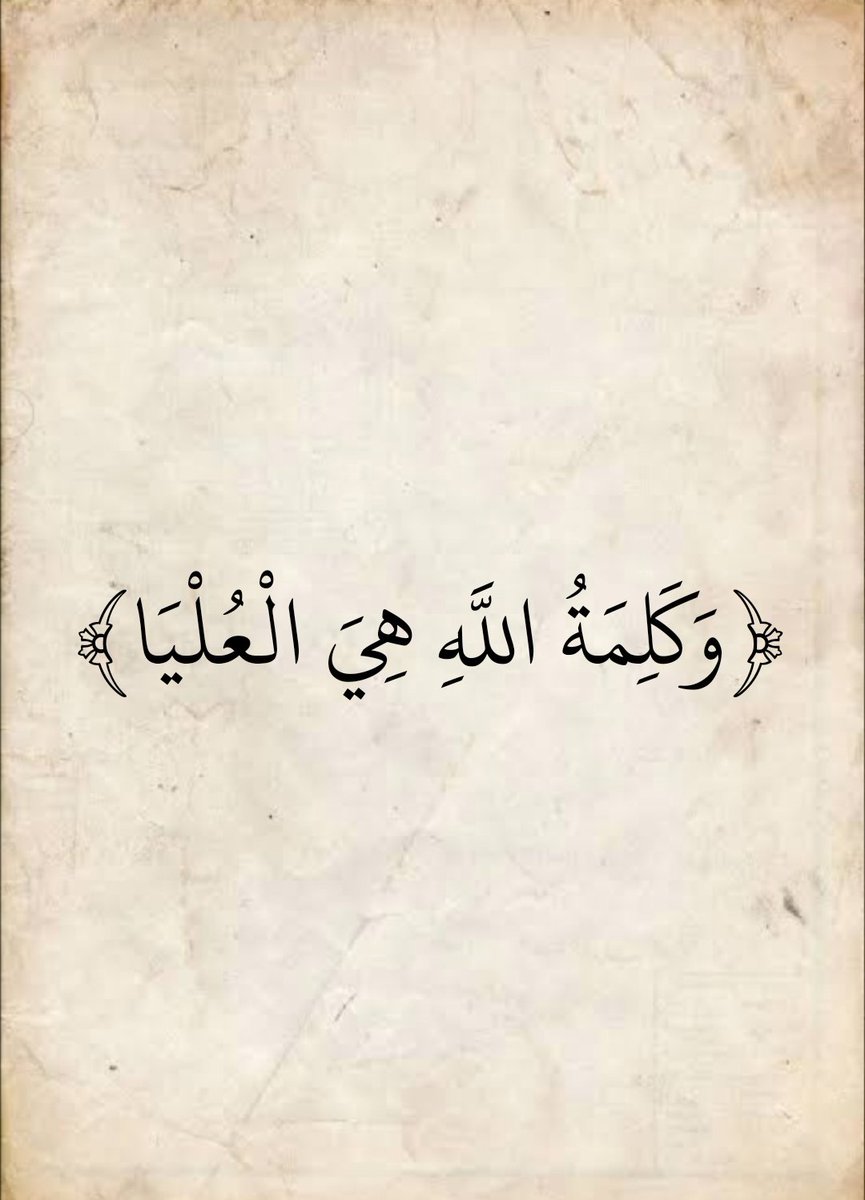 ﴿وَكَلِمَةُ اللَّهِ هِيَ الْعُلْيَا﴾